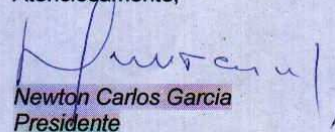 Atenciosamente,
Newton Carlos Garcia
Presidente